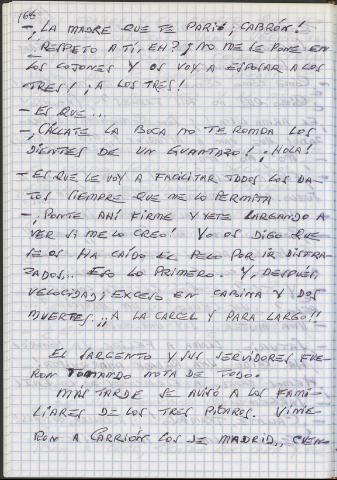 166
-¡LA MADRE QUE TE PARIÓ, ¡CABRÓN!
RESPETO A TÍ, EH? ¡NO ME SE PONE EN
LOS COJONES Y OS VOY A ESPOSAR A LOS
TRES! ¡A LOS TRES!
- ES QUE...
-¡CÁLLATE LA BOCA NO TE ROMPA LOS
DIENTES DE UN GUANTAZO! ¡HOLA!
- ES QUE LE VOY A FACILITAR TODOS LOS DA-
TOS SIEMPRE QUE ME LO PERMITA
-¡PONTE AHÍ FIRME Y VETE LARGANDO A
VER SI ME LO CREO! YO OS DIGO QUE
SE OS HA CAÍDO EL PELO POR IR DISFRA-
ZADOS... ESO LO PRIMERO. Y, DESPUÉS,
VELOCIDAD, EXCESO EN CABINA Y DOS
MUERTES ¡¡A LA CARCEL Y PARA LARGO!!
EL SARGENTO Y SUS SERVIDORES FUE-
RON TOMANDO NOTA DE TODO.
MÁS TARDE SE AVISÓ A LOS FAMI-
LIARES DE LOS TRES PÍCAROS. VINIE-
RON A CARRIÓN LOS DE MADRID,